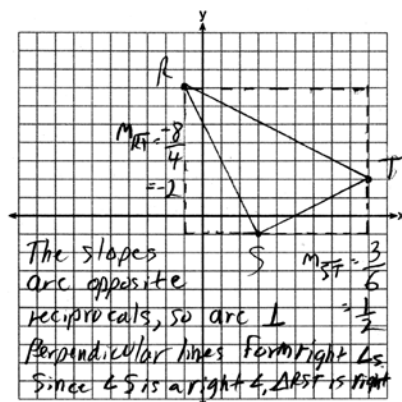 y
R
m RT = -8/4
= -2
T
x
S
m ST = 3/6
= 1/2
The slopes
are opposite
reciprocals, so are ⊥
Perpendicular lines form right ∠s.
Since ∠S is a right ∠, △RST is right